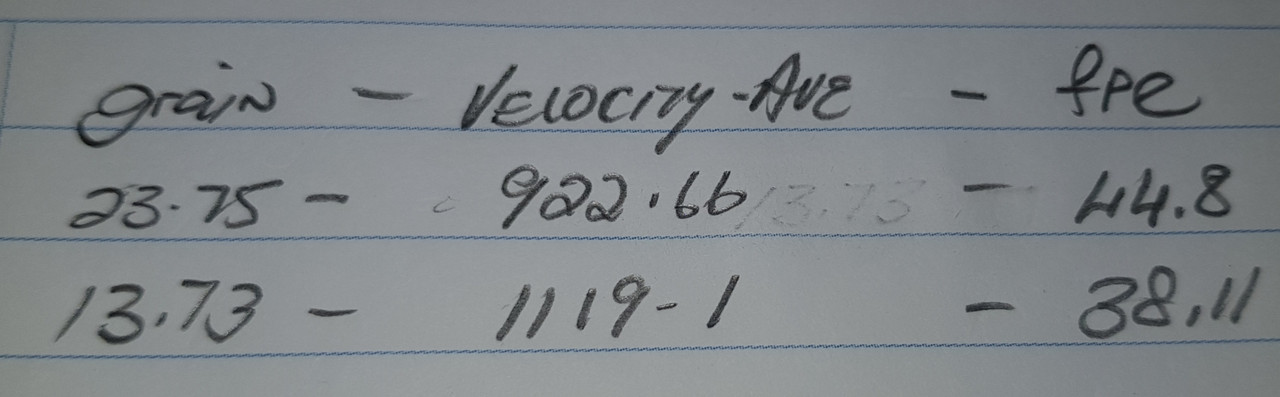 grain - Velocity-Ave - fpe
23.75 - 922.66 - 44.8
13.73 - 1119-1 - 38.11